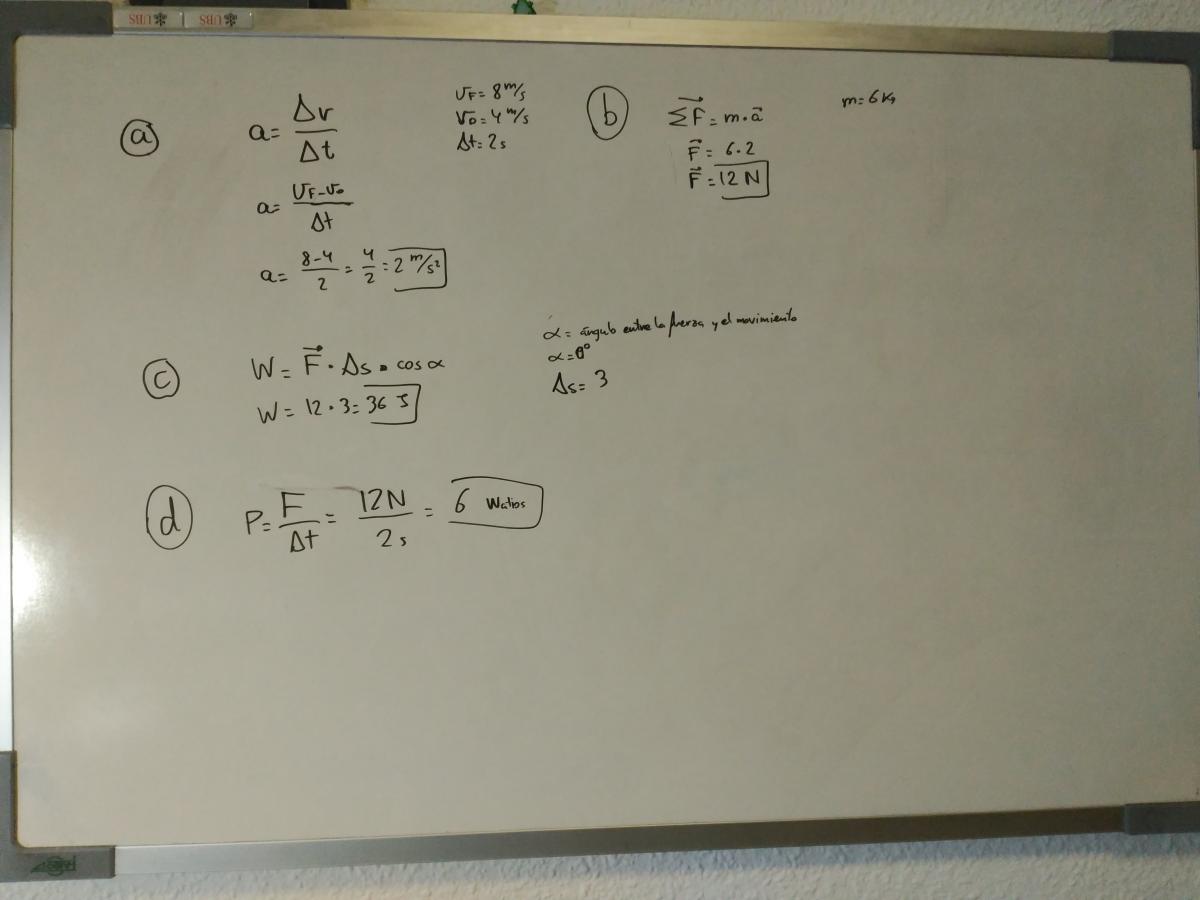 UBS UBS
a
a = Δv / Δt
VF = 8 m/s
V0 = 4 m/s
Δt = 2s
a = VF - V0 / Δt
a = 8-4 / 2 = 4 / 2 = 2 m/s²
b
ΣF⃗ = m·a⃗
m = 6 Kg
F⃗ = 6·2
F⃗ = 12 N
c
W = F⃗ · Δs · cos α
W = 12 · 3 = 36 J
α = ángulo entre la fuerza y el movimiento
α = 0º
Δs = 3
d
P = F / Δt = 12N / 2s = 6 Watios